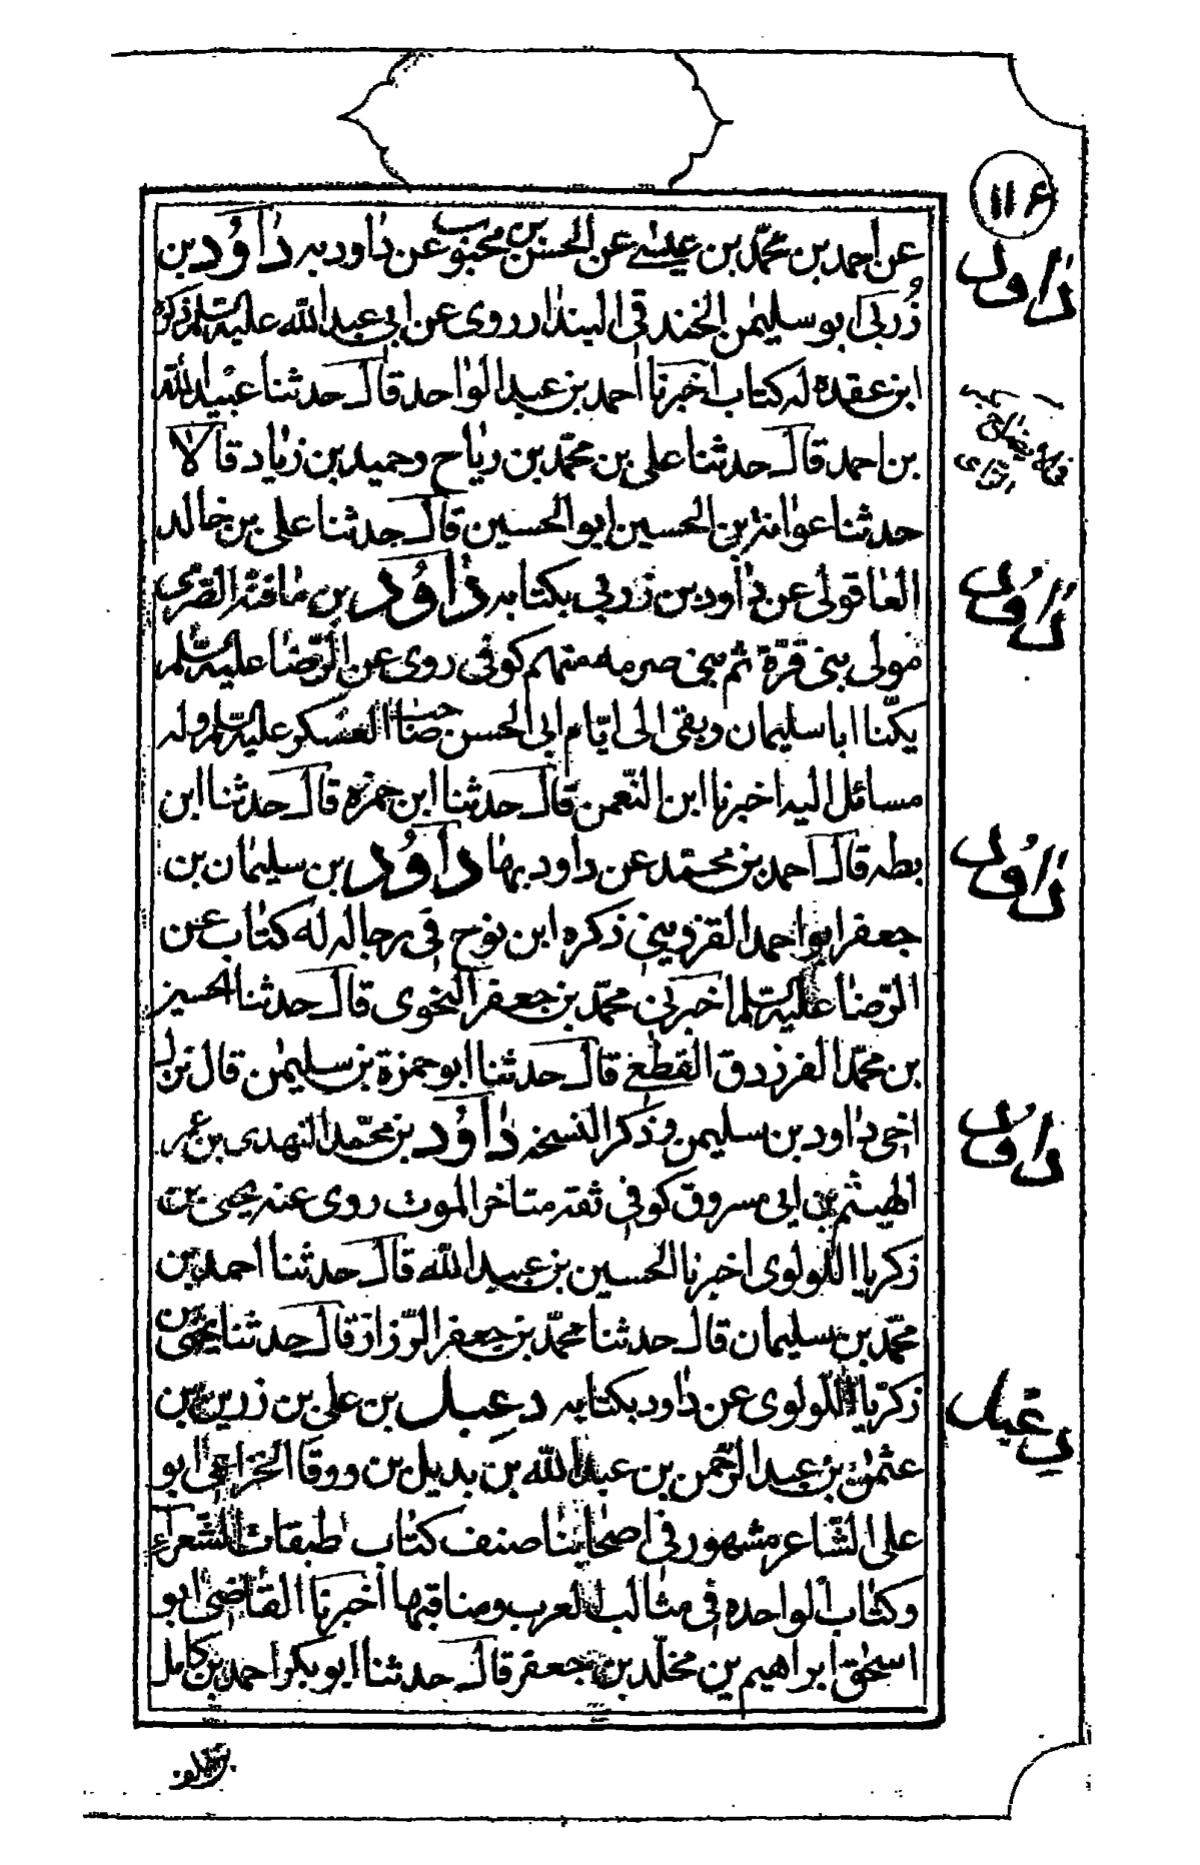 ۱۱۶
عن احمد بن محمّد بن عيسى عن الحسن بن محبوب عن داود به داوُد بن
زُربى ابو سليمٰن الخندقى البندار روى عن ابى عبد الله عليه السلم ذكره
ابن عقده له كتاب اخبرنا احمد بن عبد الواحد قال حدثنا عبيد الله
بن احمد قال حدثنا على بن محمّد بن رياح وحميد بن زياد قالا
حدثنا عوانة بن الحسين ابو الحسين قال حدثنا على بن خالد
العاقولى عن داود بن زربى بكتابه داوُد بن مافنّة الصرمى
مولى بنى قرّة ثم بنى صرمه منهم كوفى روى عن الرّضا عليه السّلم
يكنّا ابا سليمان وبقى الى ايّام ابى الحسن صاحب العسكر عليه السّلم وله
مسائل اليه اخبرنا ابن النّعمن قال حدثنا ابن حمزه قال حدثنا ابن
بطه قال احمد بن محمّد عن داود بها داوُد بن سليمان بن
جعفر ابو احمد القزوينى ذكره ابن نوح فى رجاله له كتاب عن
الرّضا عليه السّلم اخبرنى محمّد بن جعفر النحوى قال حدثنا الحسين
بن محمّد الفرزدق القطعى قال حدثنا ابو حمزة بن سليمٰن قال نزل
اخى داود بن سليمن وذكر النسخه داوُد بن محمّد النهدى بن عم
الهيثم بن ابى مسروق كوفى ثقة متاخر الموت روى عنه يحيى بن
زكريا اللولوى اخبرنا الحسين بن عبيد الله قال حدثنا احمد بن
محمّد بن سليمان قال حدثنا محمّد بن جعفر الرّزاز قال حدثنا يحيى بن
زكريّا اللولوى عن داود بكتابه دعبل بن على بن زرين بن
عثمن بن عبد الرّحمن بن عبد الله بن بديل بن ورقا الخزاعى ابو
على الشّاعر مشهور فى اصحابنا صنف كتاب طبقات الشّعراء
وكتاب الواحده فى مثالب العرب ومناقبها اخبرنا القاضى ابو
اسحٰق ابراهيم بن مخلّد بن جعفر قال حدثنا ابو بكر احمد بن كامل
داود
داوُد
داوُد
داوُد
دعبل